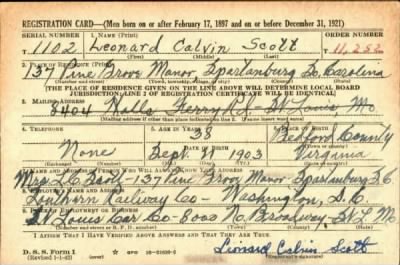 REGISTRATION CARD—(Men born on or after February 17, 1897 and on or before December 31, 1921)
SERIAL NUMBER 1. NAME (Print) ORDER NUMBER
1102 Leonard Calvin Scott 11,252
(First) (Middle) (Last)
2. PLACE OF RESIDENCE (Print)
137 Pine Grove Manor, Spartanburg So. Carolina
(Number and street) (Town, township, village, or city) (County) (State)
[THE PLACE OF RESIDENCE GIVEN ON THE LINE ABOVE WILL DETERMINE LOCAL BOARD
JURISDICTION; LINE 2 OF REGISTRATION CERTIFICATE WILL BE IDENTICAL]
3. MAILING ADDRESS
8404 Halls Ferry Rd. - St Louis Mo
[Mailing address if other than place indicated on line 2. If same insert word same]
4. TELEPHONE 5. AGE IN YEARS 6. PLACE OF BIRTH
38 Bedford County
None DATE OF BIRTH
Sept. 1903 Virginia
(Exchange) (Number) (Mo.) (Day) (Yr.) (State or country)
7. NAME AND ADDRESS OF PERSON WHO WILL ALWAYS KNOW YOUR ADDRESS
Mrs. L.C. Scott - 137 Pine Grove Manor - Spartanburg S.C
8. EMPLOYER'S NAME AND ADDRESS
Southern Railway Co - Washington, D.C.
9. PLACE OF EMPLOYMENT OR BUSINESS
St Louis Car Co - 8000 N. Broadway - St L Mo
(Number and street or R. F. D. number) (Town) (County) (State)
I AFFIRM THAT I HAVE VERIFIED ABOVE ANSWERS AND THAT THEY ARE TRUE.
D. S. S. Form 1
(Revised 1-1-42) GPO Leonard Calvin Scott
(Registrant's signature)